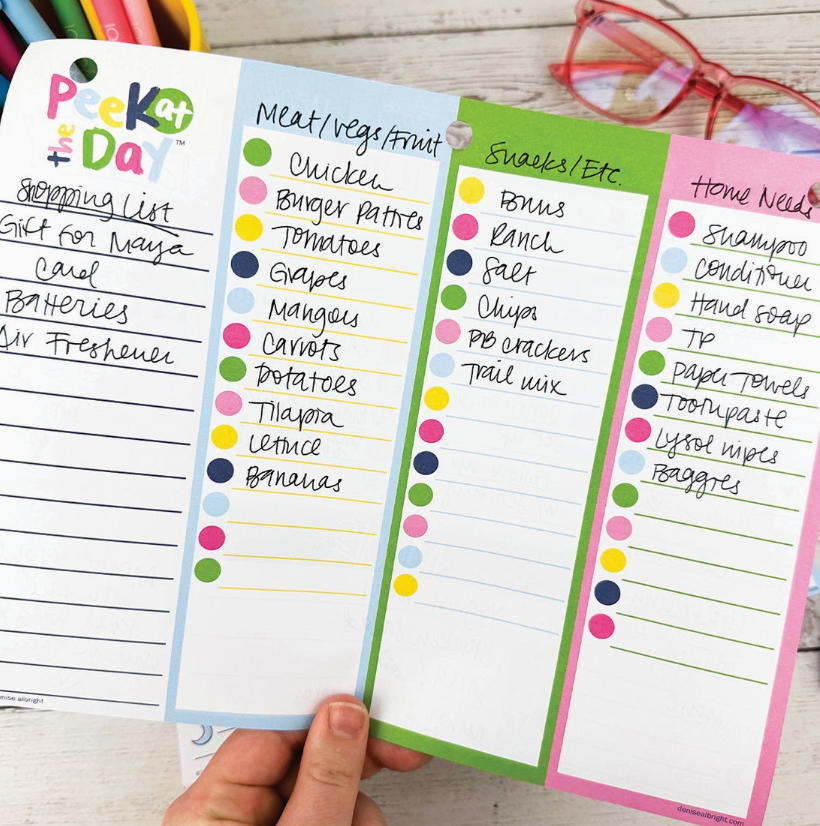 Peek at
the Day™
Shopping List
Gift for Maya
Card
Batteries
Air Freshener
denise albright
Meat/Vegs/Fruit
Chicken
Burger Patties
Tomatoes
Grapes
Mangoes
Carrots
Potatoes
Tilapia
Lettuce
Bananas
Snacks/Etc.
Buns
Ranch
Salt
Chips
PB crackers
Trail mix
Home Needs
Shampoo
Conditioner
Hand soap
TP
Paper Towels
Toothpaste
Lysol wipes
Baggies
denisealbright.com